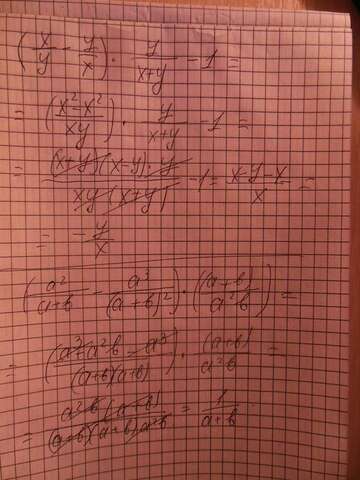 (x/y - y/x) · y/(x+y) - 1 =
= ((x² - x²)/(xy)) · y/(x+y) - 1 =
= ((x+y)(x-y)·y)/(xy(x+y)) - 1 = (x-y-x)/x =
= - y/x
(a²/(a+b) - a³/(a+b)²) · ((a+b)/(a²b)) =
= ((a³+a²b-a³)/((a+b)(a+b))) · (a+b)/(a²b) =
= (a²b(a+b))/((a+b)(a+b)a²b) = 1/(a+b)